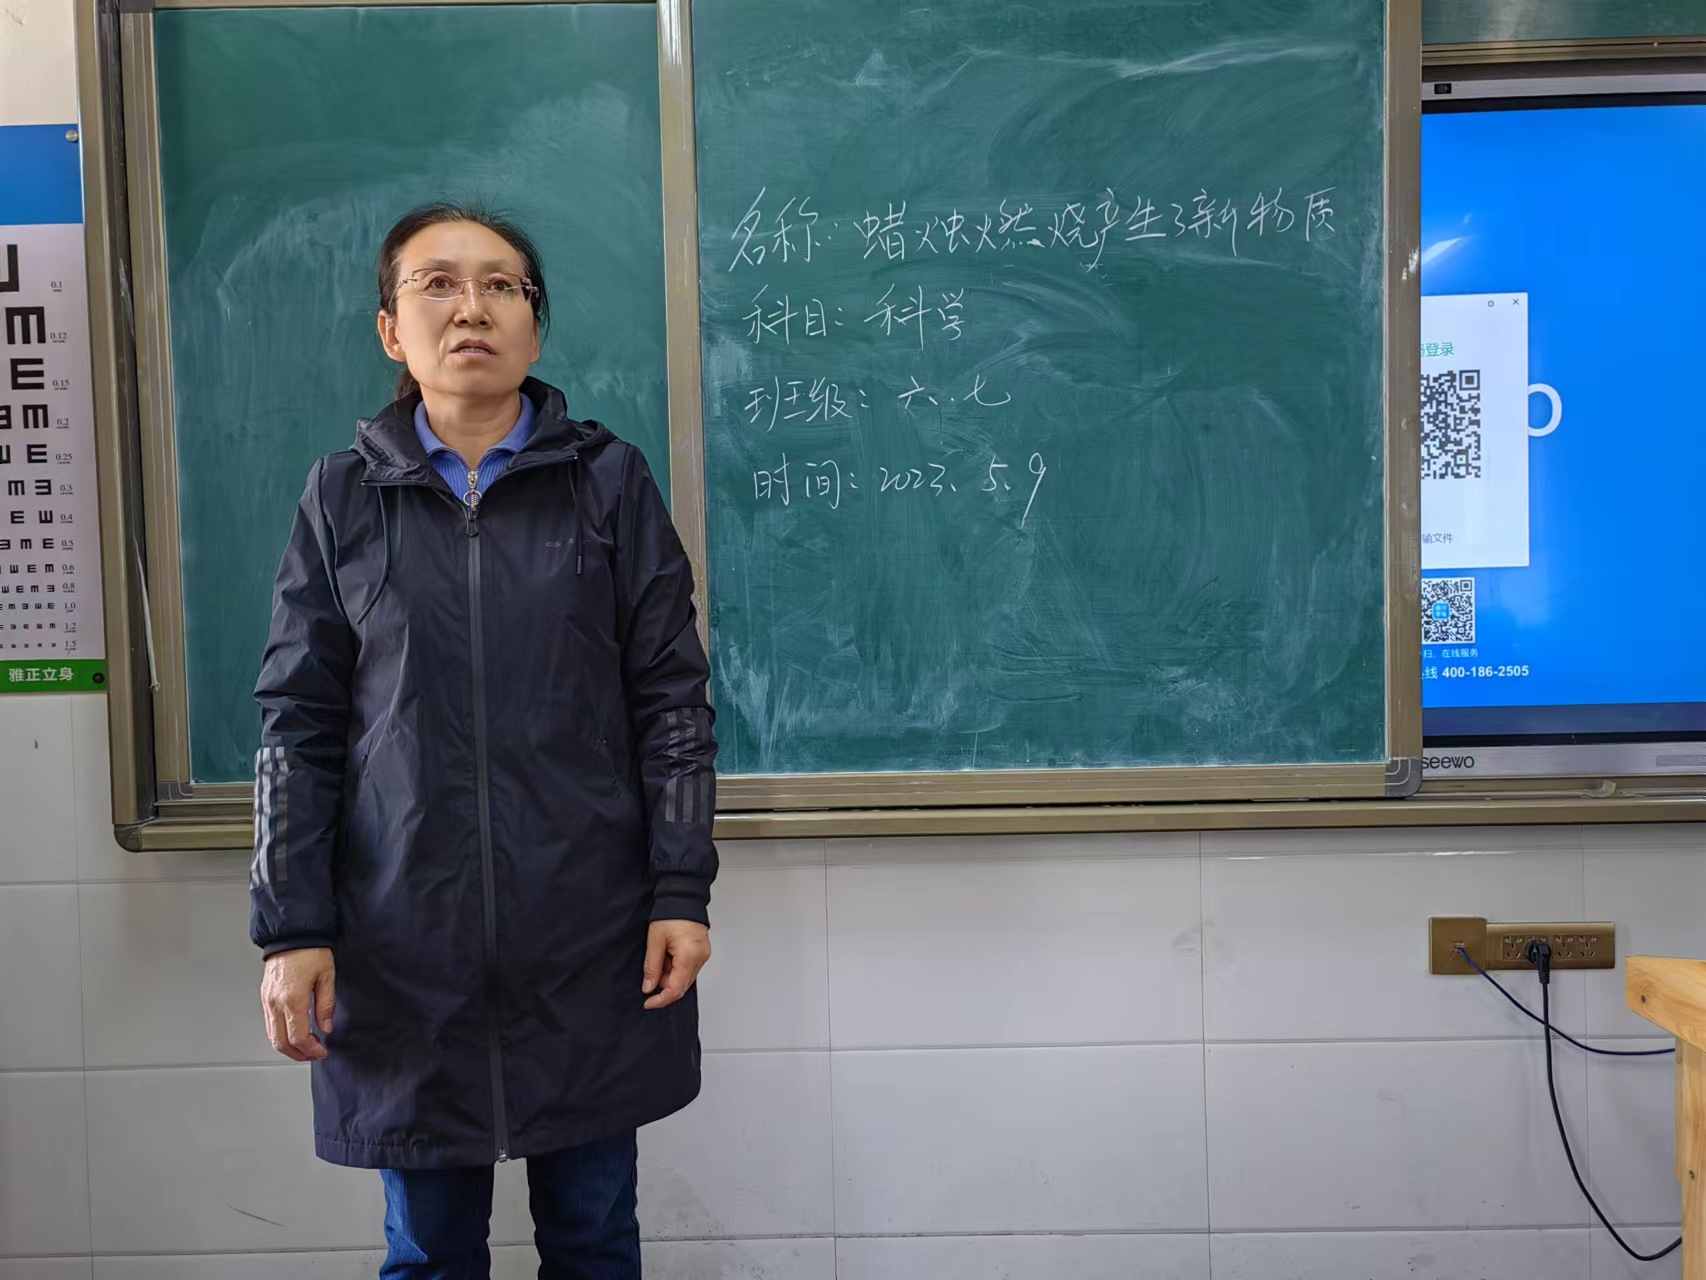 名称:蜡烛燃烧产生了新物质
科目:科学
班级:六.七
时间:2023.5.9
0.1
0.12
0.15
0.2
0.25
0.3
0.4
0.5
0.6
0.8
1.0
1.2
1.5
雅正立身
登录
输文件
扫,在线服务
线 400-186-2505
seewo